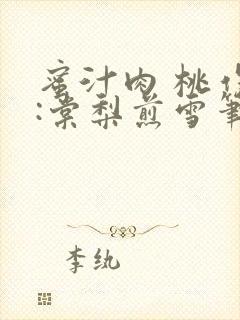 蜜汁肉桃作
:棠梨煎雪笔
李纨